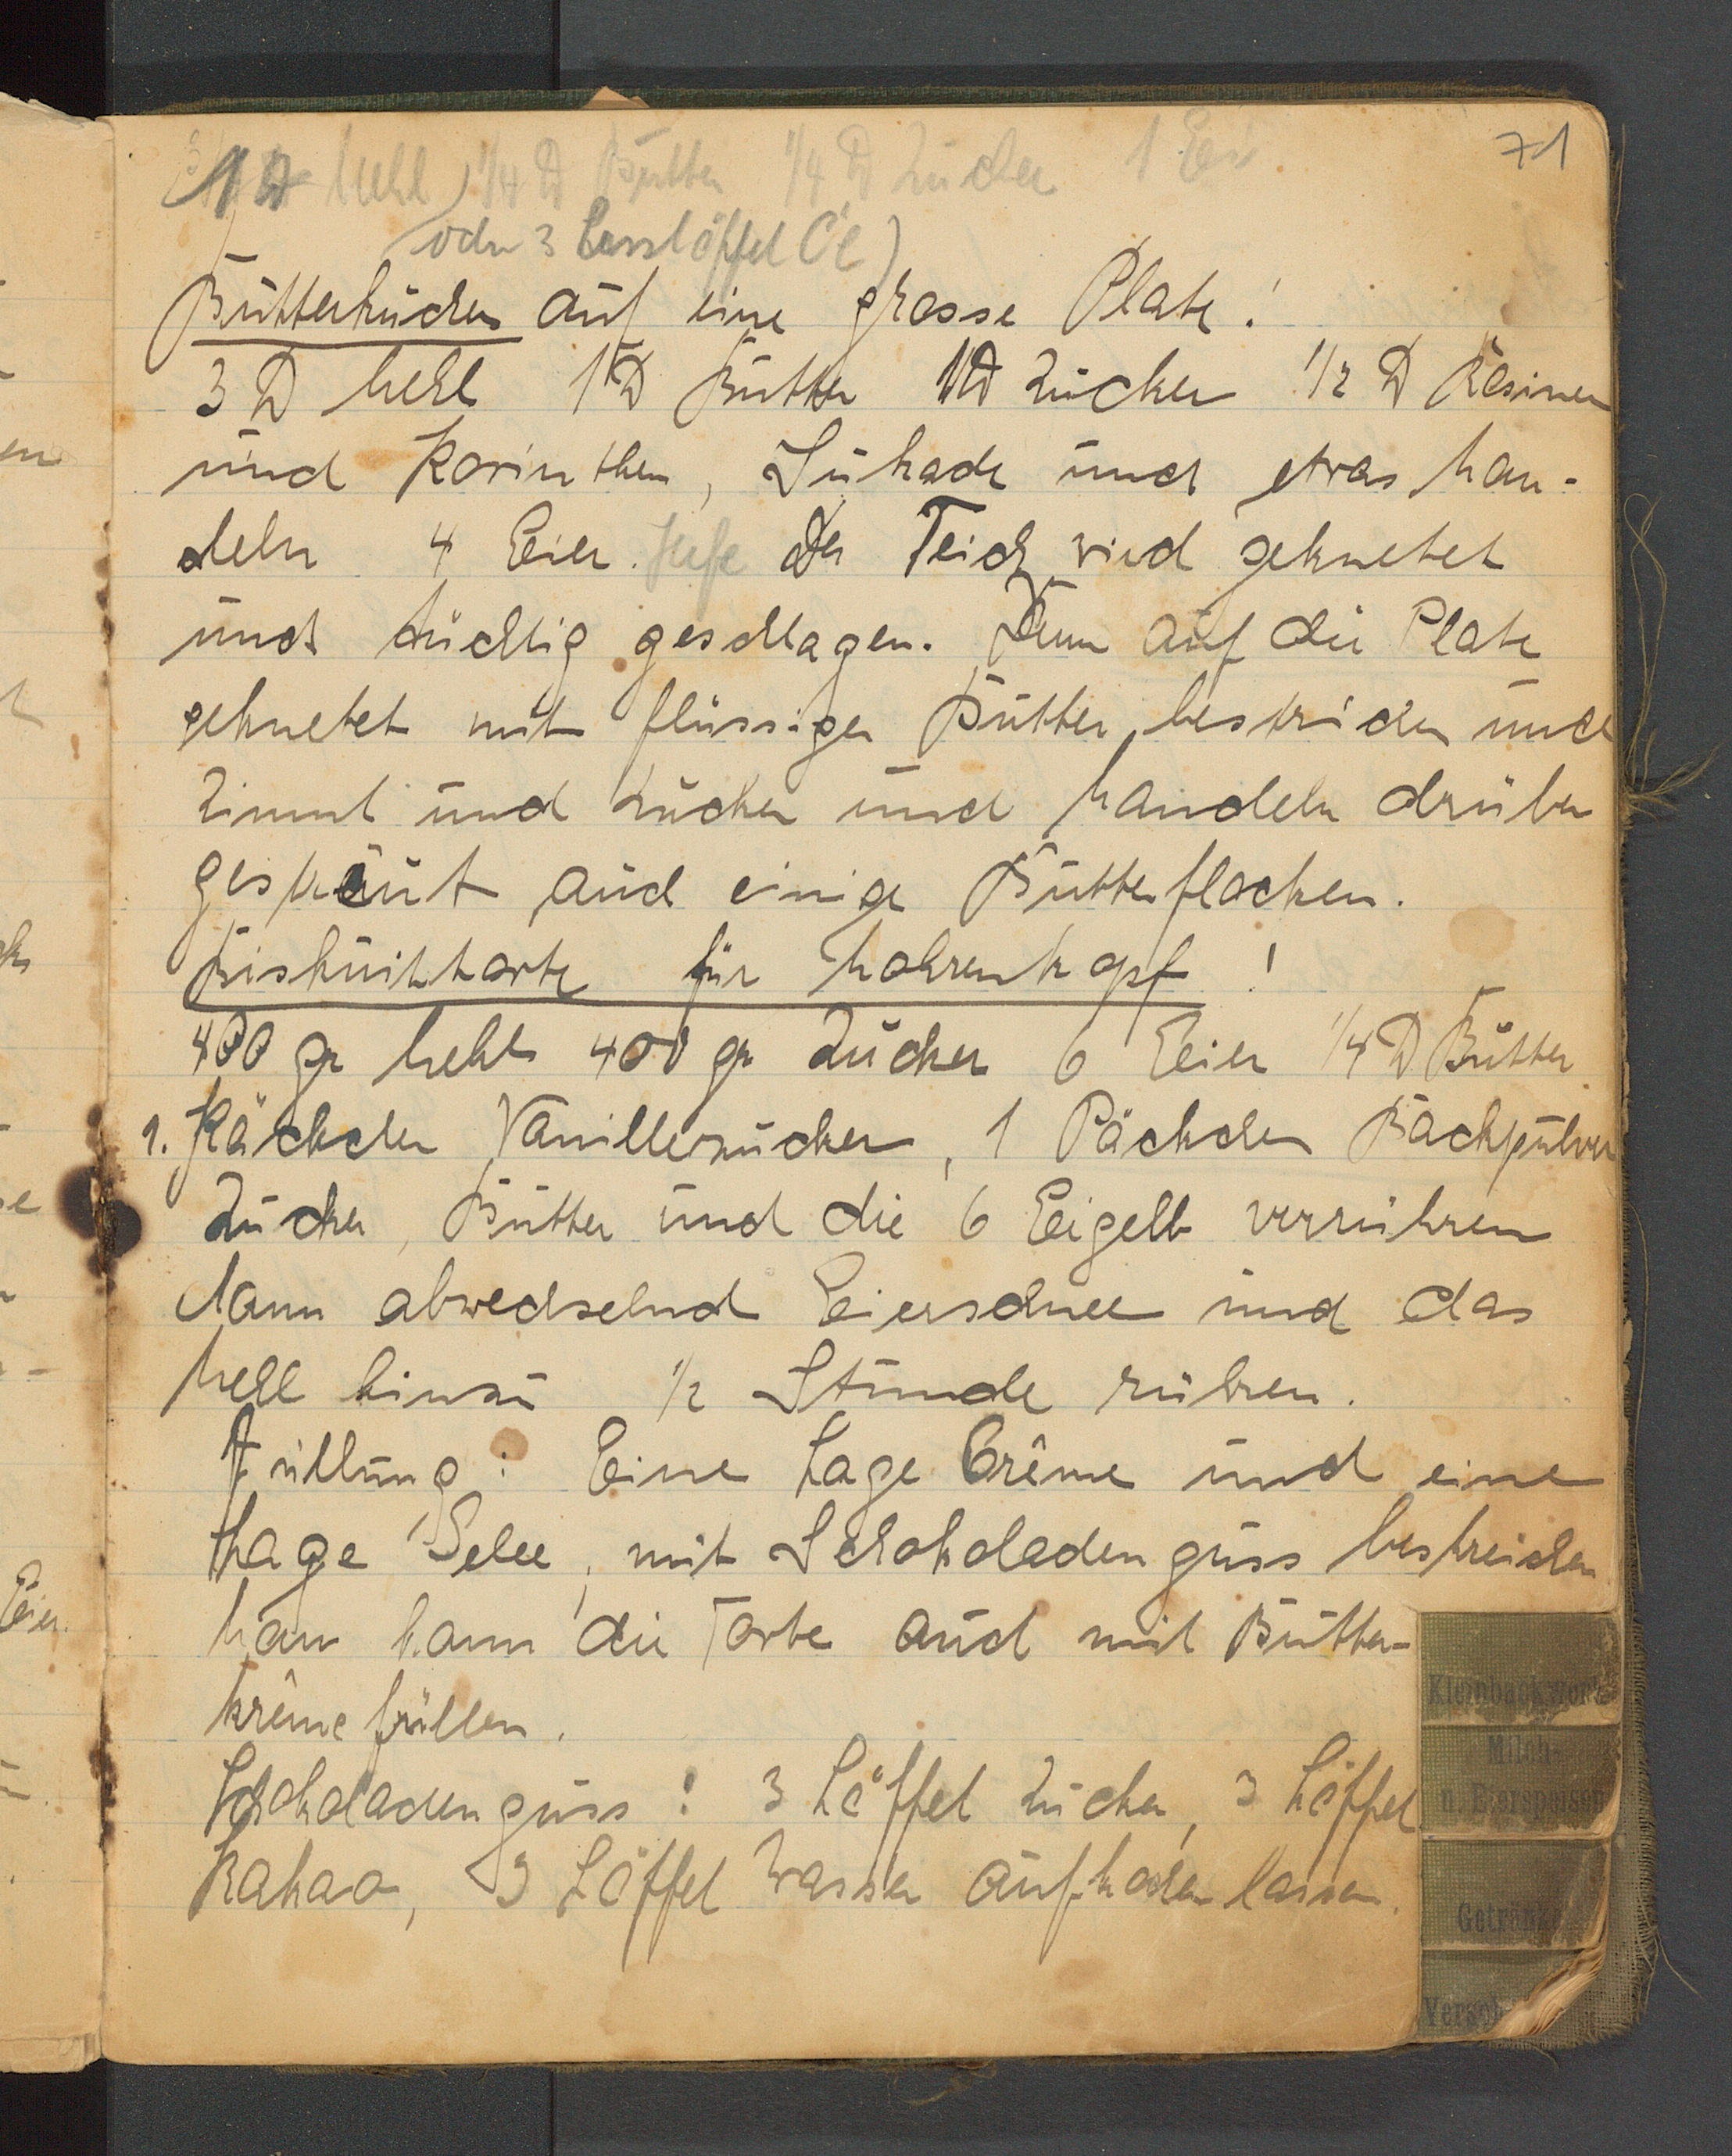 71
1 ℔ Mehl, 1/4 ℔ Butter 1/4 ℔ Zucker 1 Ei
(oder 3 Esslöffel Öl)
Butterkuchen auf eine grosse Plate!
3 ℔ Mehl 1 ℔ Butter 1/2 ℔ Zucker 1/2 ℔ Rosinen
und Korinthen, Sukade und etwas Man-
deln 4 Eier. Hefe Der Teich wird geknetet
und tüchtig geschlagen. Dann auf die Plate
geknetet mit flüssiger Butter bestrichen und
Zimmt und Zucker und Mandeln drüber
gestreut auch einige Butterflocken.
Biskuittorte für Mohrenkopf!
400 gr Mehl 400 gr Zucker 6 Eier 1/4 ℔ Butter
1. Päckchen Vanillezucker, 1 Päckchen Backpulver
Zucker, Butter und die 6 Eigelb verrühren
dann abwechselnd Eierschnee und das
Mehl hinzu 1/2 Stunde rühren.
Füllung: Eine Lage Crême und eine
Lage Gelee, mit Schokoladenguss bestreichen
Man kann die Torte auch mit Butter-
krême füllen.
Schokoladenguss: 3 Löffel Zucker, 3 Löffel
Kakao, 3 Löffel Wasser aufkochen lassen.
Eier.
Kleinbackwerk
Milch-
u. Eierspeisen
Getränke